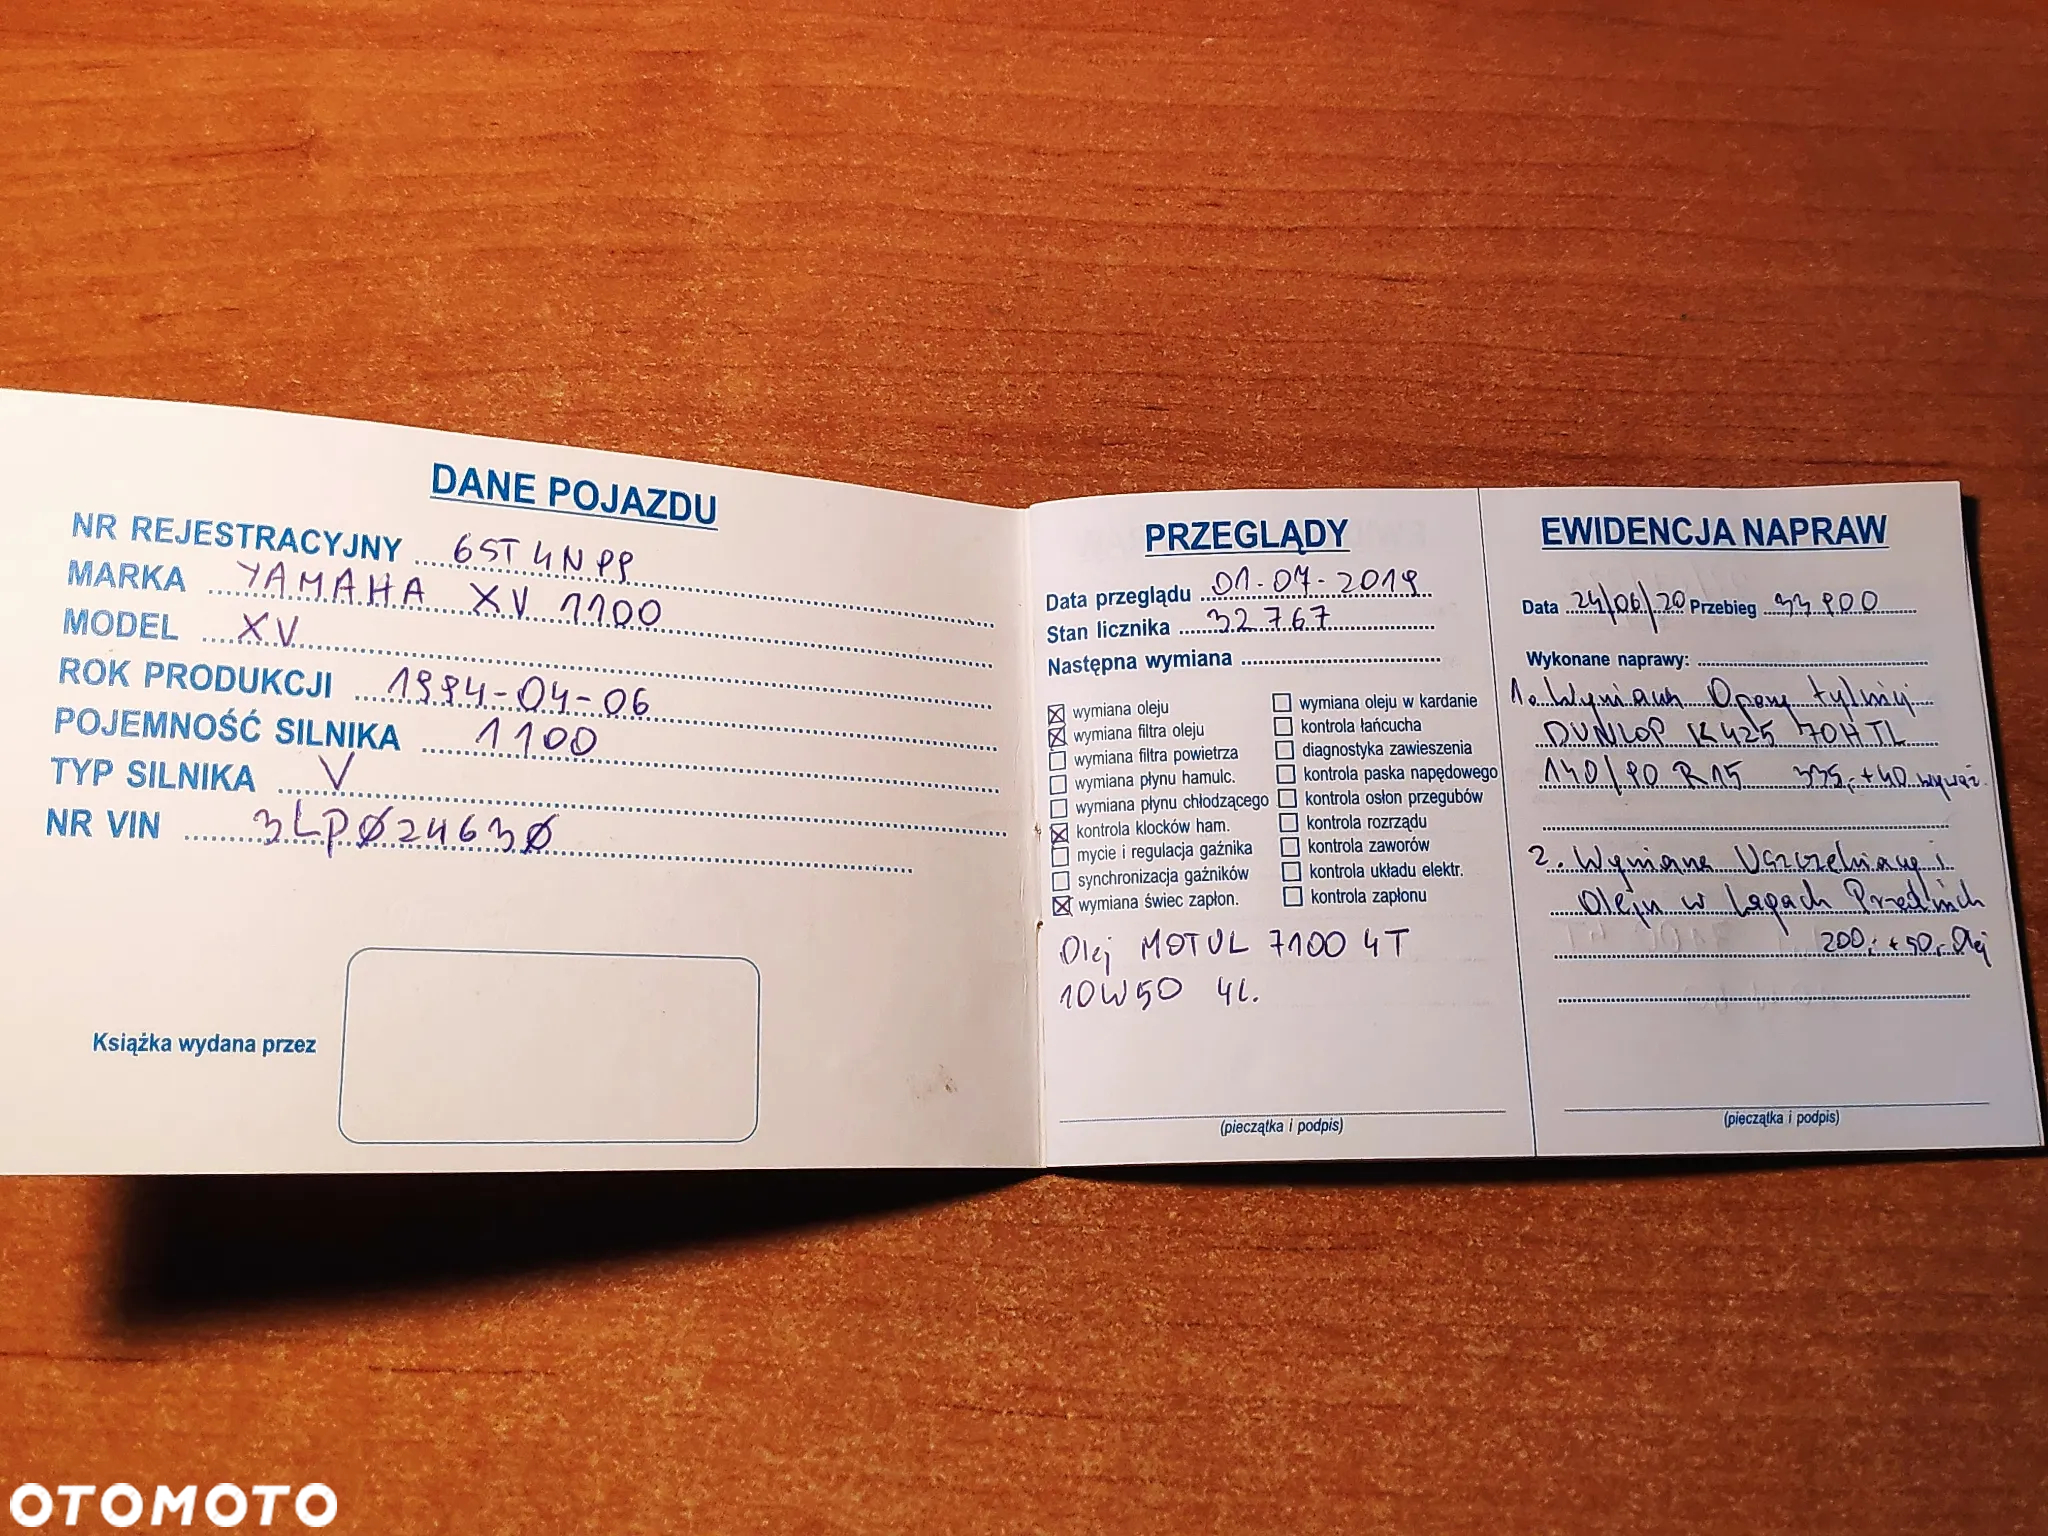 DANE POJAZDU
NR REJESTRACYJNY
MARKA YAMAHA XV 1100
MODEL XV
ROK PRODUKCJI 1994-04-06
POJEMNOŚĆ SILNIKA 1100
TYP SILNIKA V
NR VIN 3LPØ24630
Książka wydana przez
PRZEGLĄDY
Data przeglądu 01-07-2019
Stan licznika 32767
Następna wymiana
wymiana oleju
wymiana filtra oleju
wymiana filtra powietrza
wymiana płynu hamulc.
wymiana płynu chłodzącego
kontrola klocków ham.
mycie i regulacja gaźnika
synchronizacja gaźników
wymiana świec zapłon.
wymiana oleju w kardanie
kontrola łańcucha
diagnostyka zawieszenia
kontrola paska napędowego
kontrola osłon przegubów
kontrola rozrządu
kontrola zaworów
kontrola układu elektr.
kontrola zapłonu
Olej MOTUL 7100 4T
10W50 4l.
(pieczątka i podpis)
EWIDENCJA NAPRAW
Data 24/06/20 Przebieg 33900
Wykonane naprawy:
1. Wymiana Opony tylniej
DUNLOP K425 70H TL
140/90 R15 335,- + 40 wyważ.
2. Wymiana Uszczelniaczy i
Oleju w Lagach Przednich
200,- + 50,- Olej
(pieczątka i podpis)
OTOMOTO